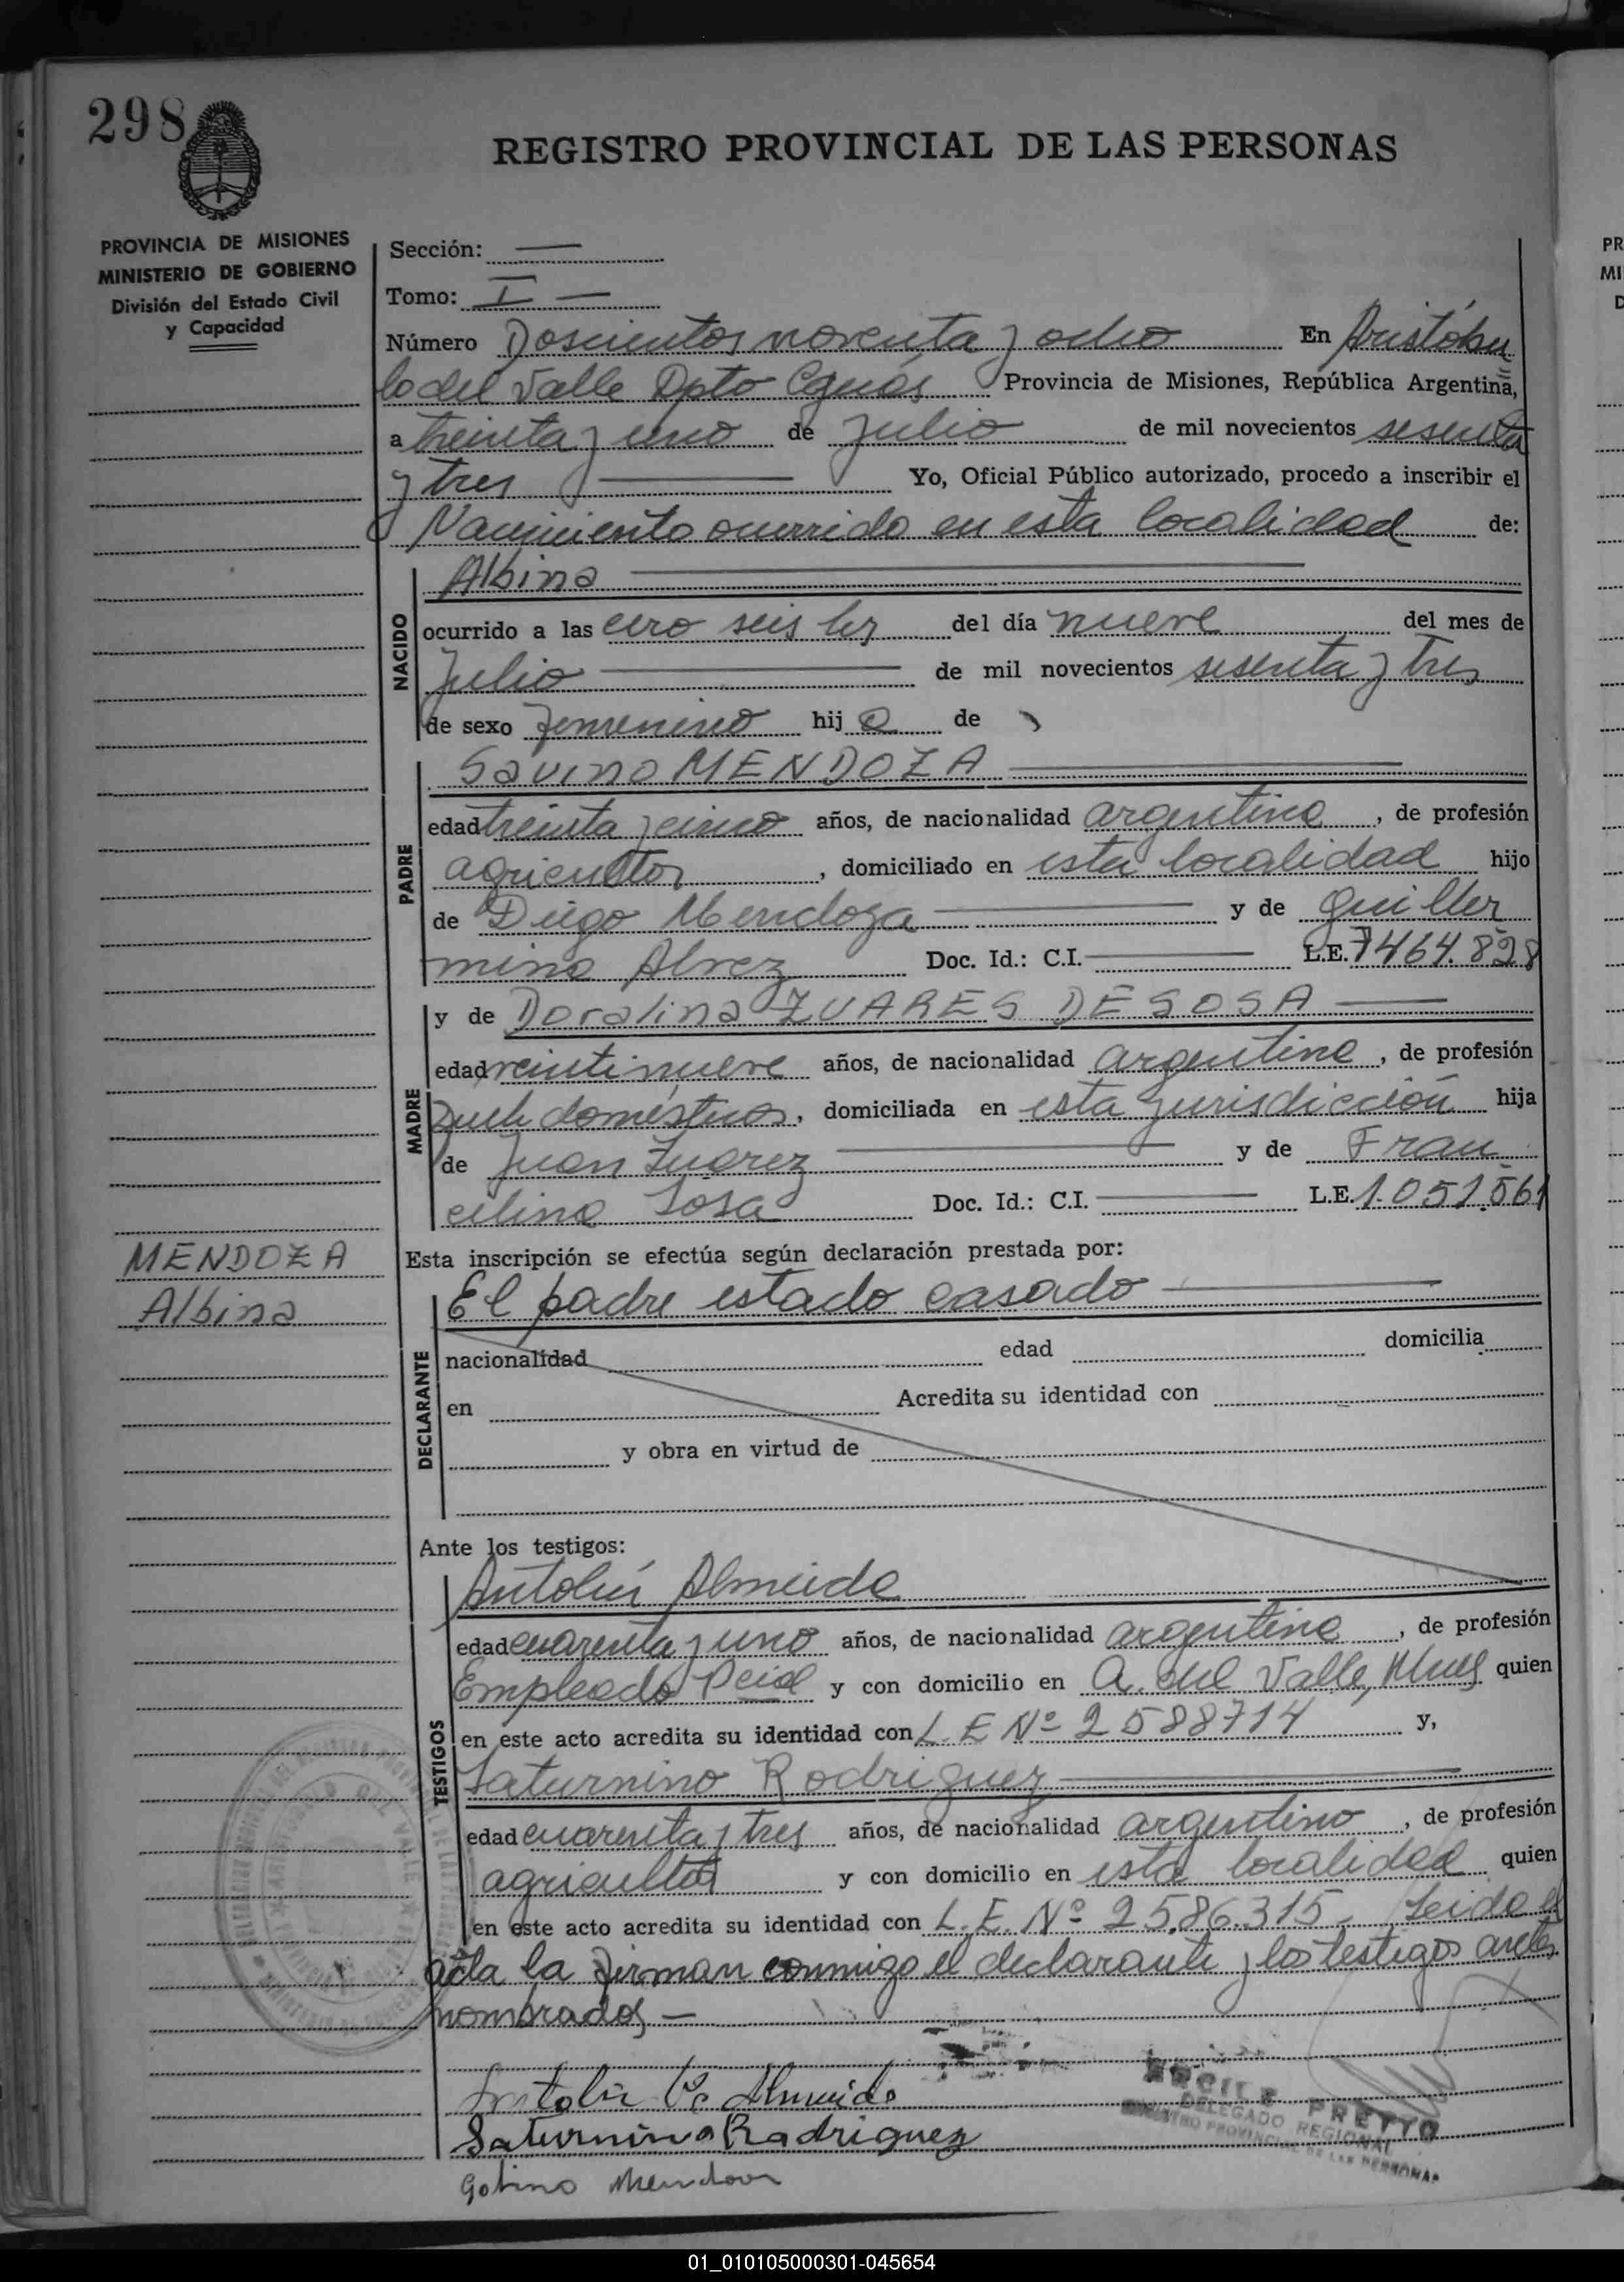 298
REGISTRO PROVINCIAL DE LAS PERSONAS
PROVINCIA DE MISIONES
MINISTERIO DE GOBIERNO
División del Estado Civil
y Capacidad
Sección: —
Tomo: I —
Número Doscientos noventa y ocho En Aristóbu
lo del Valle Dpto Cgúas Provincia de Misiones, República Argentina,
a treinta y uno de julio de mil novecientos sesenta
y tres — Yo, Oficial Público autorizado, procedo a inscribir el
Nacimiento ocurrido en esta localidad de:
NACIDO
Albina —
ocurrido a las cero seis hs del día nueve del mes de
Julio — de mil novecientos sesenta y tres
de sexo femenino hija de
PADRE
Savino MENDOZA —
edad treinta y cinco años, de nacionalidad argentino, de profesión
agricultor, domiciliado en esta localidad hijo
de Diego Mendoza — y de Guiller
mina Alvez Doc. Id.: C.I. — L.E. 7464.828
MADRE
y de Doralina ZUARES DE SOSA —
edad veintinueve años, de nacionalidad argentina, de profesión
domésticos, domiciliada en esta jurisdicción hija
de Juan Zuarez — y de Fran
celina Sosa Doc. Id.: C.I. — L.E. 1.051.561
MENDOZA
Albina
Esta inscripción se efectúa según declaración prestada por:
DECLARANTE
El padre estado casado —
nacionalidad edad domicilia
en Acredita su identidad con
y obra en virtud de
Ante los testigos:
TESTIGOS
Antolín Almeida
edad cuarenta y uno años, de nacionalidad argentino, de profesión
Empleado Pcial y con domicilio en A. del Valle, Mnes quien
en este acto acredita su identidad con L.E Nº 2588714 y,
Saturnino Rodriguez —
edad cuarenta y tres años, de nacionalidad argentino, de profesión
agricultor y con domicilio en esta localidad quien
en este acto acredita su identidad con L.E. Nº 2586.315. Leida el
acta la firman conmigo el declarante y los testigos antes
nombrados —
Antolin Almeida
Saturnino Rodriguez
Mendoza
PRETTO
DELEGADO REGIONAL
REGISTRO PROVINCIAL DE LAS PERSONAS
01_010105000301-045654